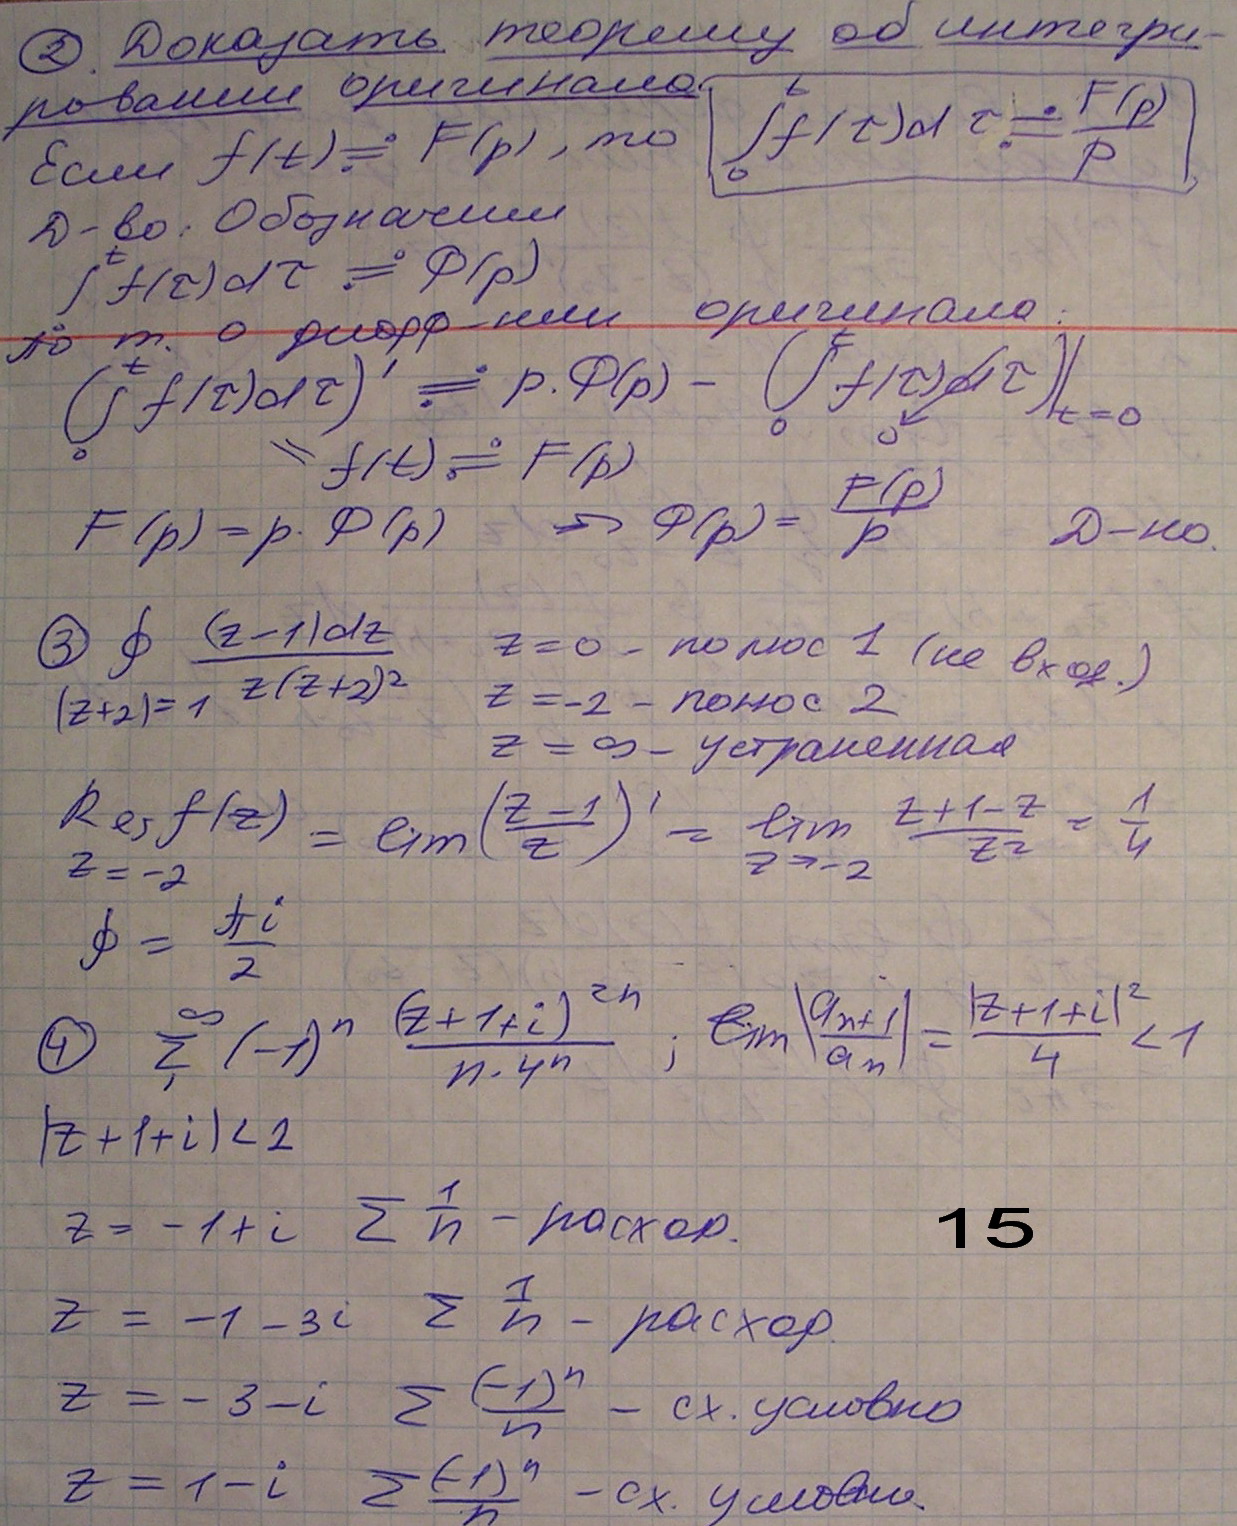 ② Доказать теорему об интегри-
ровании оригинала.
Если f(t) ≓ F(p), то ∫₀ᵗ f(τ)dτ ≓ F(p)/p
Д-во: Обозначим
∫₀ᵗ f(τ)dτ ≓ Φ(p)
По т. о дифф-нии оригинала:
(∫₀ᵗ f(τ)dτ)' ≓ p·Φ(p) - (∫₀ᵗ f(τ)dτ)|ₜ₌₀ 0
= f(t) ≓ F(p)
F(p) = p·Φ(p) => Φ(p) = F(p)/p Д-но.
③ ∮ |z+2|=1 (z-1)dz / z(z+2)² z=0 - полюс 1 (не вход.)
z=-2 - полюс 2
z=∞ - устраненная
Res f(z) z=-2 = lim((z-1)/z)' = lim z→-2 (z+1-z)/z² = 1/4
∮ = πi/2
④ Σ₁^∞ (-1)ⁿ (z+1+i)²ⁿ / n·4ⁿ ; lim|aₙ₊₁/aₙ| = |z+1+i|²/4 < 1
|z+1+i| < 2
z = -1+i Σ 1/n - расход.
15
z = -1-3i Σ 1/n - расход.
z = -3-i Σ (-1)ⁿ/n - сх. условно
z = 1-i Σ (-1)ⁿ/n - сх. условно.